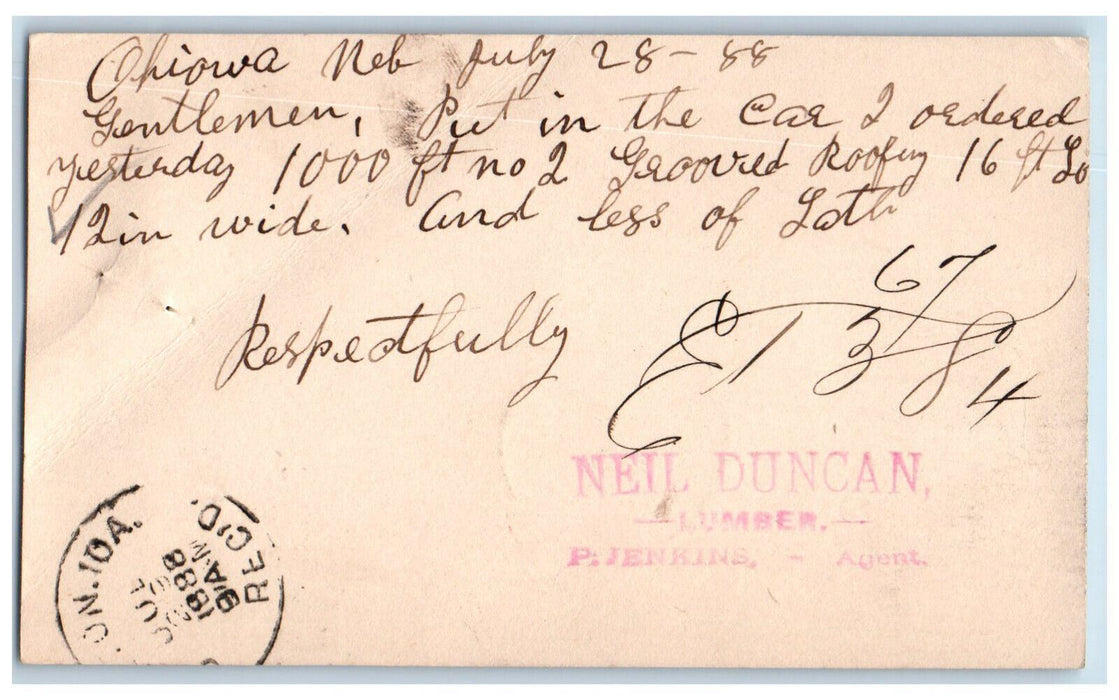 Ohiowa Neb July 28-88
Gentlemen, Put in the Car 2 ordered
yesterday 1000 ft no 2 Grooved Roofing 16 ft Lo
12 in wide. And less of Lath
67
Respectfully E 1384
NEIL DUNCAN,
—LUMBER.—
P. JENKINS, - Agent.
ON. IOA.
JUL
1888
9 AM
REC'D.